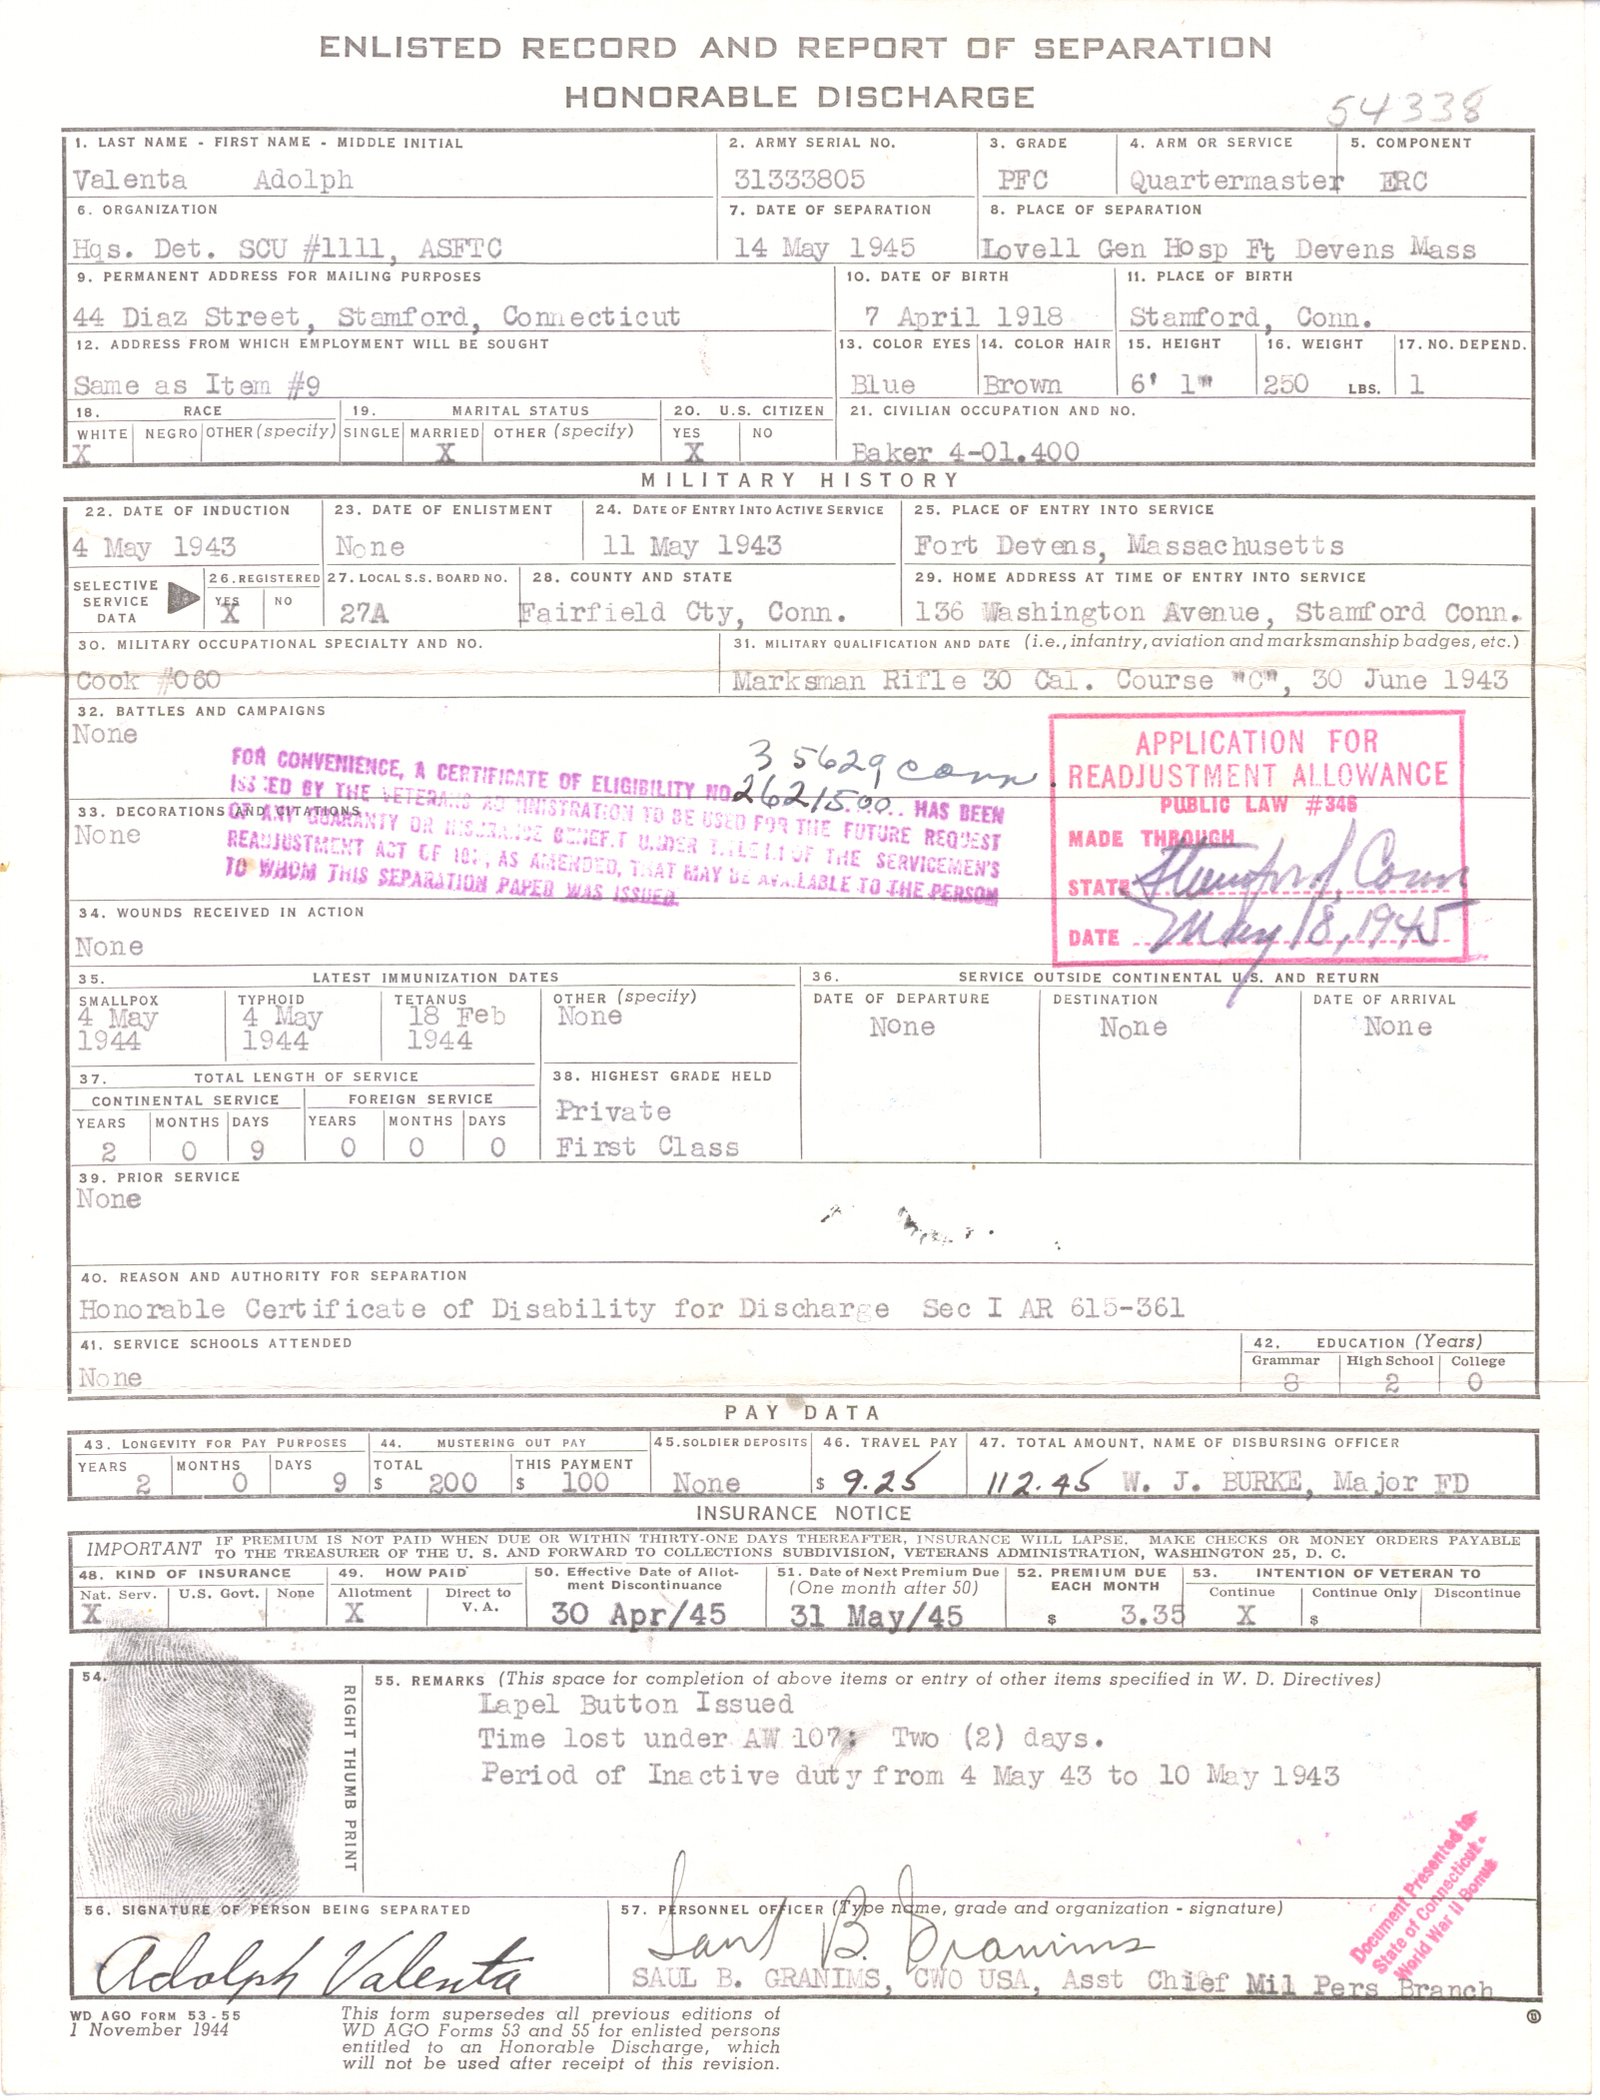 ENLISTED RECORD AND REPORT OF SEPARATION
HONORABLE DISCHARGE
54338
1. LAST NAME - FIRST NAME - MIDDLE INITIAL 2. ARMY SERIAL NO. 3. GRADE 4. ARM OR SERVICE 5. COMPONENT
Valenta Adolph 31333805 PFC Quartermaster ERC
6. ORGANIZATION 7. DATE OF SEPARATION 8. PLACE OF SEPARATION
Hqs. Det. SCU #1111, ASFTC 14 May 1945 Lovell Gen Hosp Ft Devens Mass
9. PERMANENT ADDRESS FOR MAILING PURPOSES 10. DATE OF BIRTH 11. PLACE OF BIRTH
44 Diaz Street, Stamford, Connecticut 7 April 1918 Stamford, Conn.
12. ADDRESS FROM WHICH EMPLOYMENT WILL BE SOUGHT 13. COLOR EYES 14. COLOR HAIR 15. HEIGHT 16. WEIGHT 17. NO. DEPEND.
Same as Item #9 Blue Brown 6' 1" 250 LBS. 1
18. RACE 19. MARITAL STATUS 20. U.S. CITIZEN 21. CIVILIAN OCCUPATION AND NO.
WHITE NEGRO OTHER (specify) SINGLE MARRIED OTHER (specify) YES NO
X X X Baker 4-01.400
MILITARY HISTORY
22. DATE OF INDUCTION 23. DATE OF ENLISTMENT 24. DATE OF ENTRY INTO ACTIVE SERVICE 25. PLACE OF ENTRY INTO SERVICE
4 May 1943 None 11 May 1943 Fort Devens, Massachusetts
SELECTIVE SERVICE DATA 26. REGISTERED 27. LOCAL S.S. BOARD NO. 28. COUNTY AND STATE 29. HOME ADDRESS AT TIME OF ENTRY INTO SERVICE
YES NO
X 27A Fairfield Cty, Conn. 136 Washington Avenue, Stamford Conn.
30. MILITARY OCCUPATIONAL SPECIALTY AND NO. 31. MILITARY QUALIFICATION AND DATE (i.e., infantry, aviation and marksmanship badges, etc.)
Cook #060 Marksman Rifle 30 Cal. Course "C", 30 June 1943
32. BATTLES AND CAMPAIGNS
None
35629 conn
FOR CONVENIENCE, A CERTIFICATE OF ELIGIBILITY NO. 2621500
ISSUED BY THE VETERANS ADMINISTRATION TO BE USED FOR THE FUTURE REQUEST HAS BEEN
OF ANY GUARANTY OR INSURANCE BENEFIT UNDER TITLE III OF THE SERVICEMEN'S
READJUSTMENT ACT OF 1944, AS AMENDED, THAT MAY BE AVAILABLE TO THE PERSON
TO WHOM THIS SEPARATION PAPER WAS ISSUED.
APPLICATION FOR
READJUSTMENT ALLOWANCE
PUBLIC LAW #346
MADE THROUGH
STATE Stamford, Conn
DATE May 18, 1945
33. DECORATIONS AND CITATIONS
None
34. WOUNDS RECEIVED IN ACTION
None
35. LATEST IMMUNIZATION DATES 36. SERVICE OUTSIDE CONTINENTAL U.S. AND RETURN
SMALLPOX TYPHOID TETANUS OTHER (specify) DATE OF DEPARTURE DESTINATION DATE OF ARRIVAL
4 May 4 May 18 Feb None None None None
1944 1944 1944
37. TOTAL LENGTH OF SERVICE 38. HIGHEST GRADE HELD
CONTINENTAL SERVICE FOREIGN SERVICE Private
YEARS MONTHS DAYS YEARS MONTHS DAYS
2 0 9 0 0 0 First Class
39. PRIOR SERVICE
None
40. REASON AND AUTHORITY FOR SEPARATION
Honorable Certificate of Disability for Discharge Sec I AR 615-361
41. SERVICE SCHOOLS ATTENDED 42. EDUCATION (Years)
Grammar High School College
None 8 2 0
PAY DATA
43. LONGEVITY FOR PAY PURPOSES 44. MUSTERING OUT PAY 45. SOLDIER DEPOSITS 46. TRAVEL PAY 47. TOTAL AMOUNT, NAME OF DISBURSING OFFICER
YEARS MONTHS DAYS TOTAL THIS PAYMENT
2 0 9 $ 200 $ 100 None $ 9.25 112.45 W. J. BURKE, Major FD
INSURANCE NOTICE
IMPORTANT IF PREMIUM IS NOT PAID WHEN DUE OR WITHIN THIRTY-ONE DAYS THEREAFTER, INSURANCE WILL LAPSE. MAKE CHECKS OR MONEY ORDERS PAYABLE
TO THE TREASURER OF THE U. S. AND FORWARD TO COLLECTIONS SUBDIVISION, VETERANS ADMINISTRATION, WASHINGTON 25, D. C.
48. KIND OF INSURANCE 49. HOW PAID 50. Effective Date of Allotment Discontinuance 51. Date of Next Premium Due (One month after 50) 52. PREMIUM DUE EACH MONTH 53. INTENTION OF VETERAN TO
Nat. Serv. U.S. Govt. None Allotment Direct to V. A. Continue Continue Only Discontinue
X X 30 Apr/45 31 May/45 $ 3.35 X $
54. RIGHT THUMB PRINT
55. REMARKS (This space for completion of above items or entry of other items specified in W. D. Directives)
Lapel Button Issued
Time lost under AW 107: Two (2) days.
Period of Inactive duty from 4 May 43 to 10 May 1943
Document Presented to
State of Connecticut.
World War II Bonus
56. SIGNATURE OF PERSON BEING SEPARATED 57. PERSONNEL OFFICER (Type name, grade and organization - signature)
Adolph Valenta Saul B. Granims
SAUL B. GRANIMS, CWO USA, Asst Chief Mil Pers Branch
WD AGO FORM 53-55
1 November 1944
This form supersedes all previous editions of
WD AGO Forms 53 and 55 for enlisted persons
entitled to an Honorable Discharge, which
will not be used after receipt of this revision.